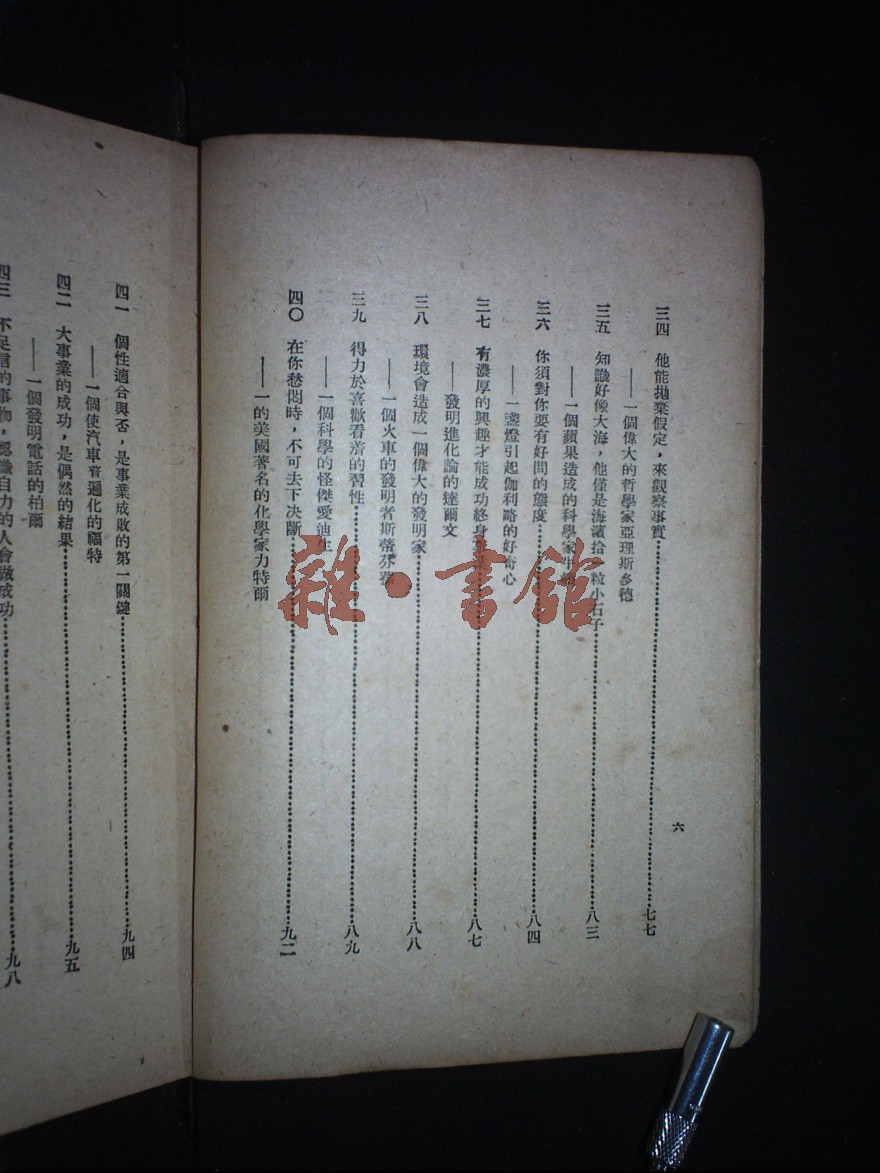 三四　他能拋棄假定，來觀察事實……七七
——一個偉大的哲學家亞理斯多德
三五　知識好像大海，他僅是海濱拾一粒小石子……八三
——一個蘋果造成的科學家牛
三六　你須對你要有好問的態度……八四
——一盞燈引起伽利略的好奇心
三七　有濃厚的興趣才能成功終身……八七
——發明進化論的達爾文
三八　環境會造成一個偉大的發明家……八八
——一個火車的發明者斯蒂芬
三九　得力於喜歡看着的習性……八九
——一個科學的怪傑愛迪生
四〇　在你愁悶時，不可去下決斷……九二
——一的美國著名的化學家力特爾
六
四一　個性適合與否，是事業成敗的第一關鍵……九四
——一個使汽車普遍化的福特
四二　大事業的成功，是偶然的結果……九五
——一個發明電話的柏爾
四三　不足信的事物，認識自力的人會做成功……九八
雜·書館